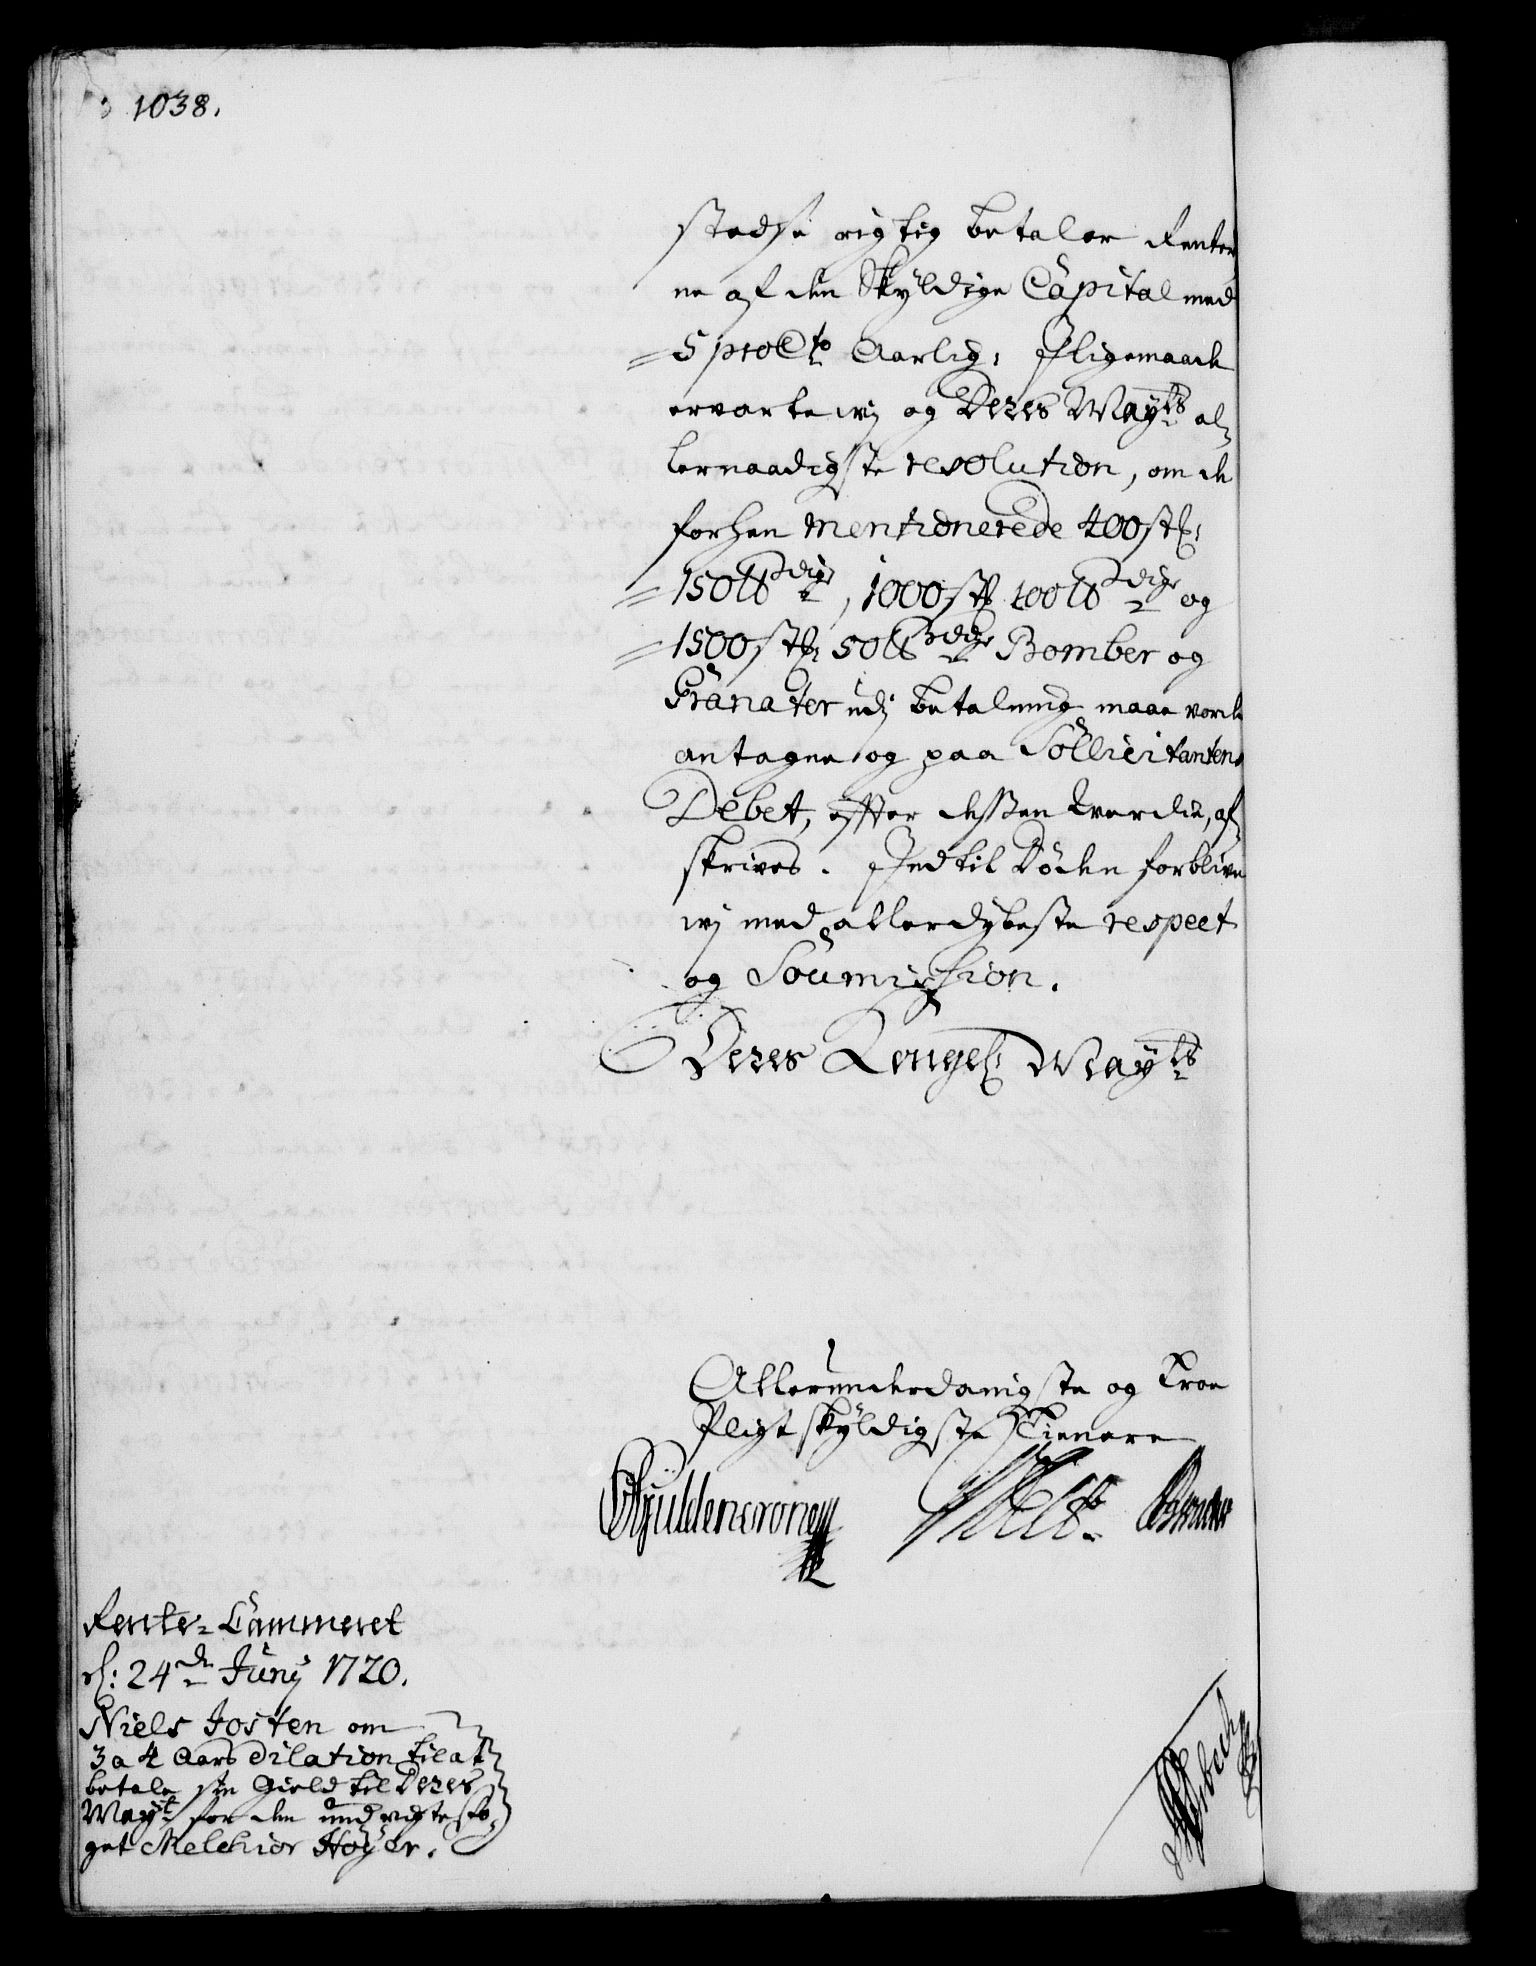 1038.
stedse rigtig betaler Renter
ne af den Skyldige Capital med
5 pro Cto Aarlig; Jligemaade
ervarte wj og Deres Mayts al,
lernaadigste resolution, om de
forhen mentionerede 400 stk:
150 ℔dige, 1000 stk 100 ℔dige og
1500 stk: 50 ℔dige Bomber og
Granater udj betaling maae vorde
antagne og paa Sollicitantens
Debet, efter dessen Werdie, af
skrives. Jndtil Døden forblive
wj med allerdybeste respect
og Soumission.
Deres Kongel: Mayts
Allerunderdanigste og troe
Pligt skyldigste Tienere
Gyldencrone
Rente-Cammeret
d: 24de Junij 1720.
Niels Josten om
3 a 4 Aars Dilation til at
betale sin Gield til Deres
Mayt for den undvigte fo,
get Melchior Høyer.